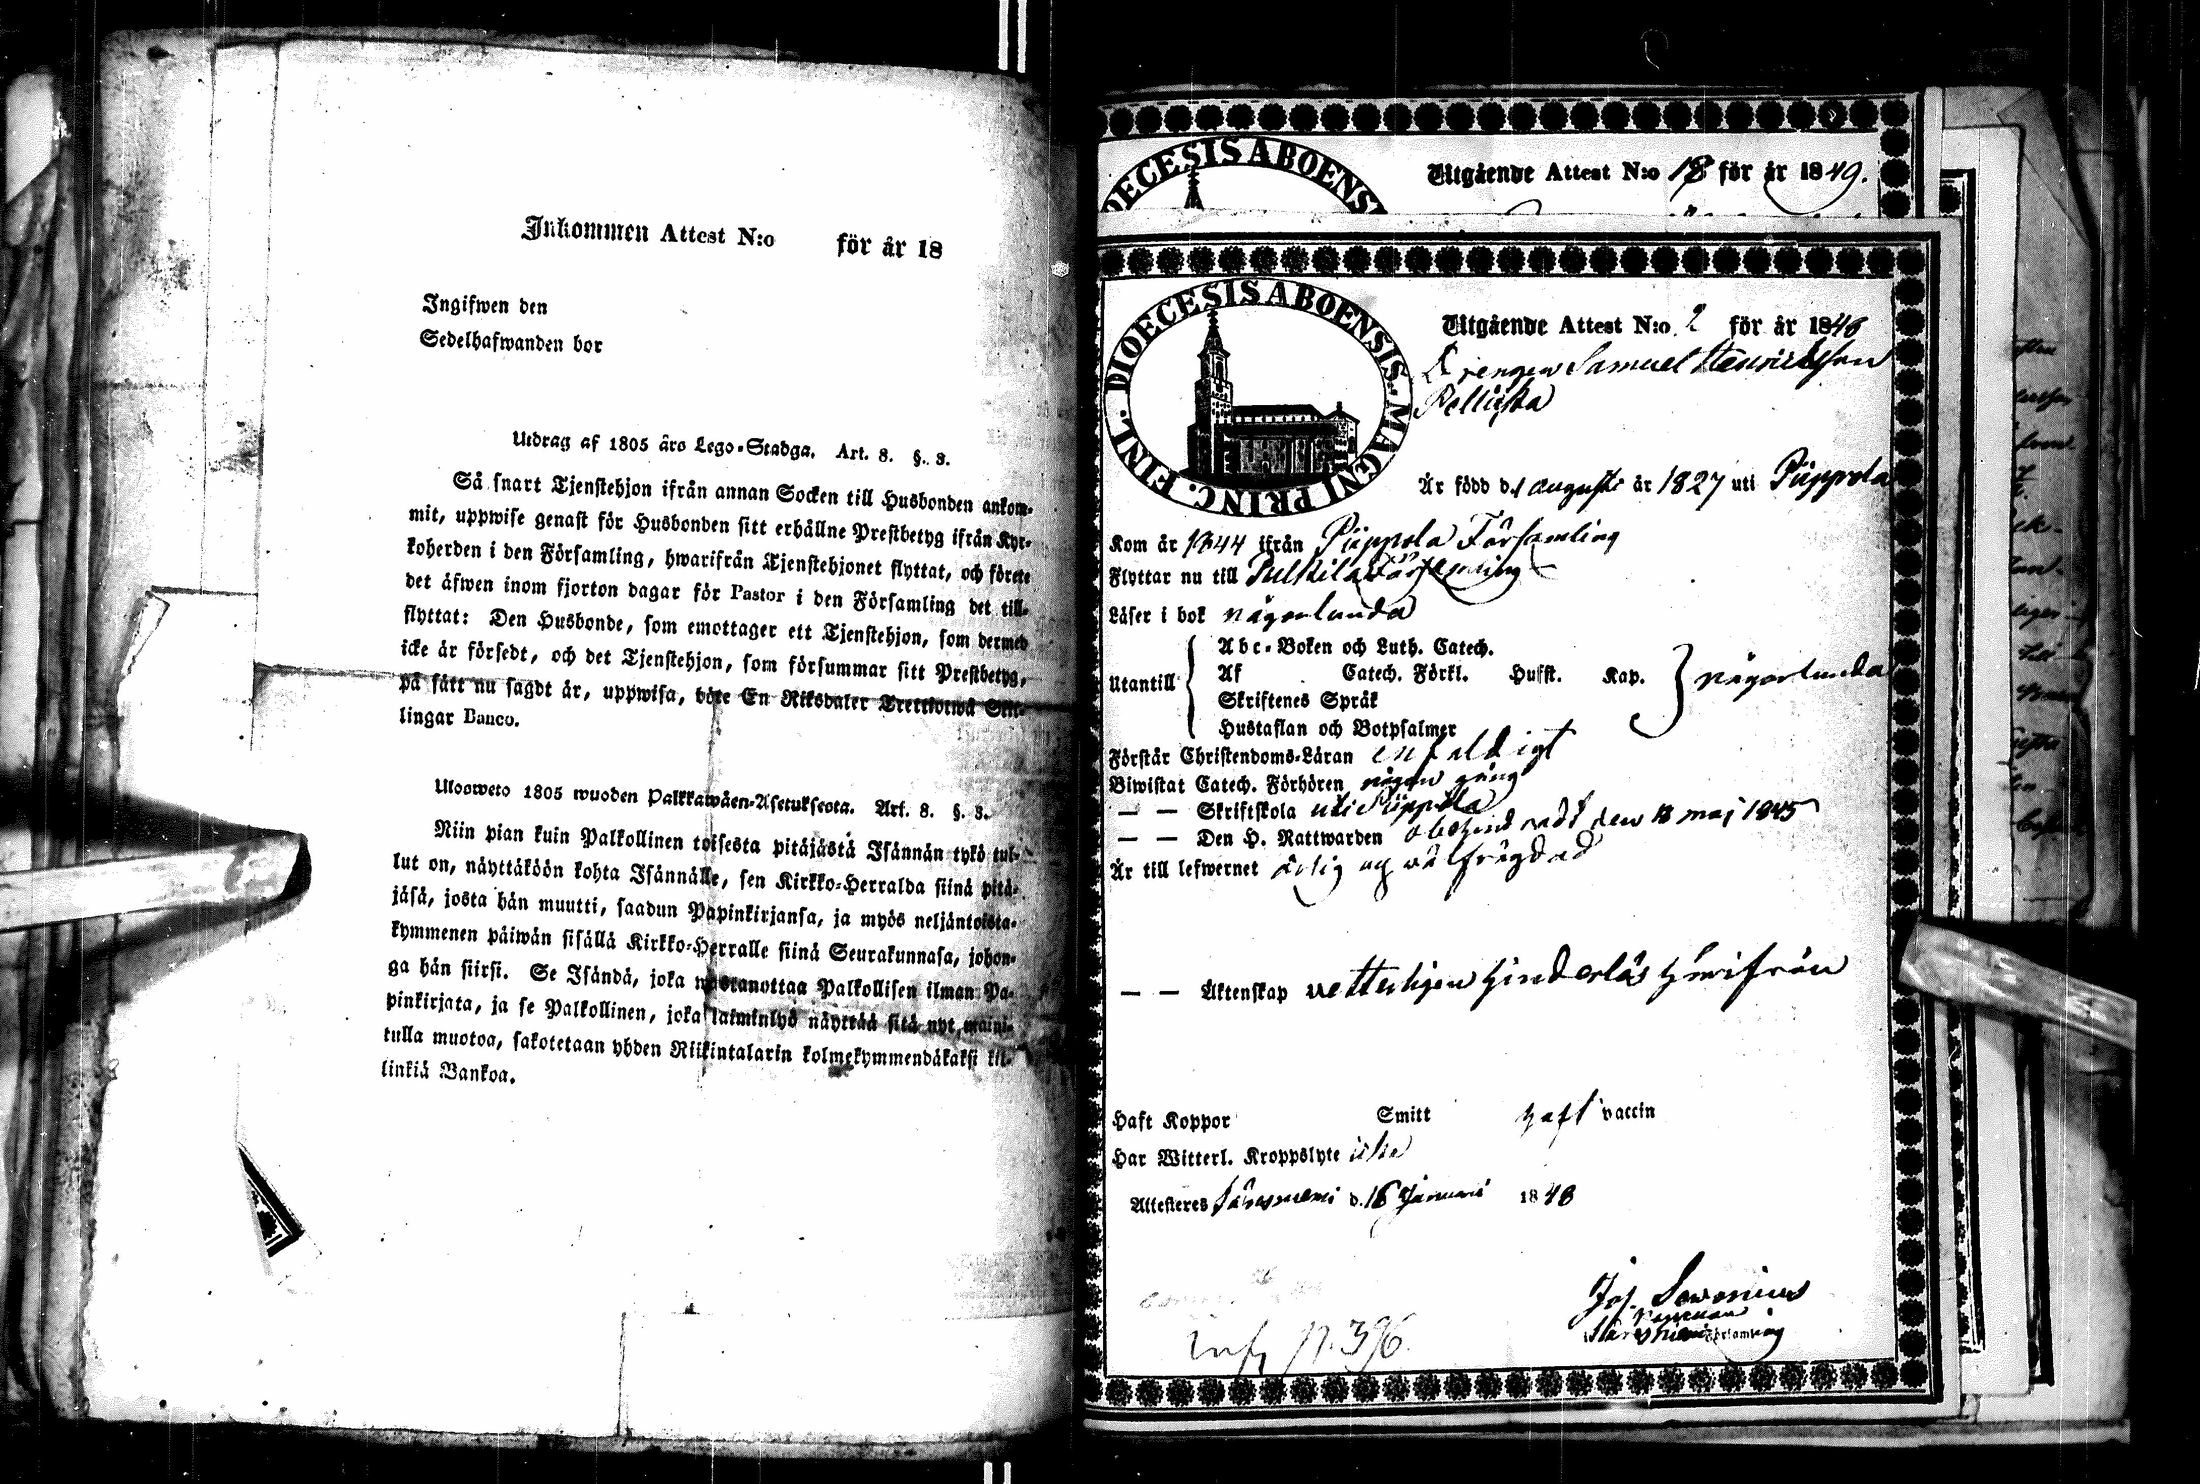 Inkommen Attest N:o för år 18
Ingifwen den
Sedelhafwanden bor
Utdrag af 1805 års Lego-Stadga. Art. 8. §. 3.
Så snart Tjenstehjon ifrån annan Socken till Husbonden ankom-
mit, uppwise genast för Husbonden sitt erhållne Prestbetyg ifrån Kyr-
koherden i den Församling, hwarifrån Tjenstehjonet flyttat, och förete
det äfwen inom fjorton dagar för Pastor i den Församling det till-
flyttat: Den Husbonde, som emottager ett Tjenstehjon, som dermed
icke är försedt, och det Tjenstehjon, som försummar sitt Prestbetyg,
på sätt nu sagdt är, uppwisa, böte En Riksdaler Trettiotwå Skil-
lingar Banco.
Ulosweto 1805 wuoden Palkkawäen-Asetuksesta. Art. 8. §. 3.
Niin pian kuin Palkollinen toisesta pitäjästä Isännän tykö tul-
lut on, näyttäköön kohta Isännälle, sen Kirkko-Herralda siinä pitä-
jäsä, josta hän muutti, saadun Papinkirjansa, ja myös neljäntoista-
kymmenen päiwän sisällä Kirkko-Herralle siinä Seurakunnasa, johon-
ga hän siirsi. Se Isändä, joka wastanottaa Palkollisen ilman Pa-
pinkirjata, ja se Palkollinen, joka laiminlyö näyttää sitä nyt maini-
tulla muotoa, sakotetaan yhden Riikintalarin kolmekymmendäkaksi kil-
linkiä Bankoa.
DIOECESIS ABOENS
Utgående Attest N:o 18 för år 1849.
DIOECESIS ABOENSIS. MAGNI PRINC. FINL.
Utgående Attest N:o 2 för år 1846
Drengen Samuel Henriksson
Är född d. 1 augusti år 1827 uti Piippola
Kom år 1844 ifrån Piippola Församling
Flyttar nu till Pulkila Församling
Läser i bok någorlunda
Utantill
Abc-Boken och Luth. Catech.
Af Catech. Förkl. Hufst. Kap.
Skriftenes Språk
Hustaflan och Botpsalmer
någorlunda
Förstår Christendoms-Läran enfaldigt
Biwistat Catech. Förhören någon gång
— — Skriftskola uti Piippola
— — Den H. Nattwarden obehindradt den 18 maj 1845
Är till lefwernet ärlig och wälfrägdad
— — Äktenskap vetterligen hinderlös härifrån
Haft Koppor Smitt haft vaccin
Har Witterl. Kroppslyte icke
Attesteras Säresniemi d. 16 Januari 1846
Jos.
Säresniemi Församling
N. 396.